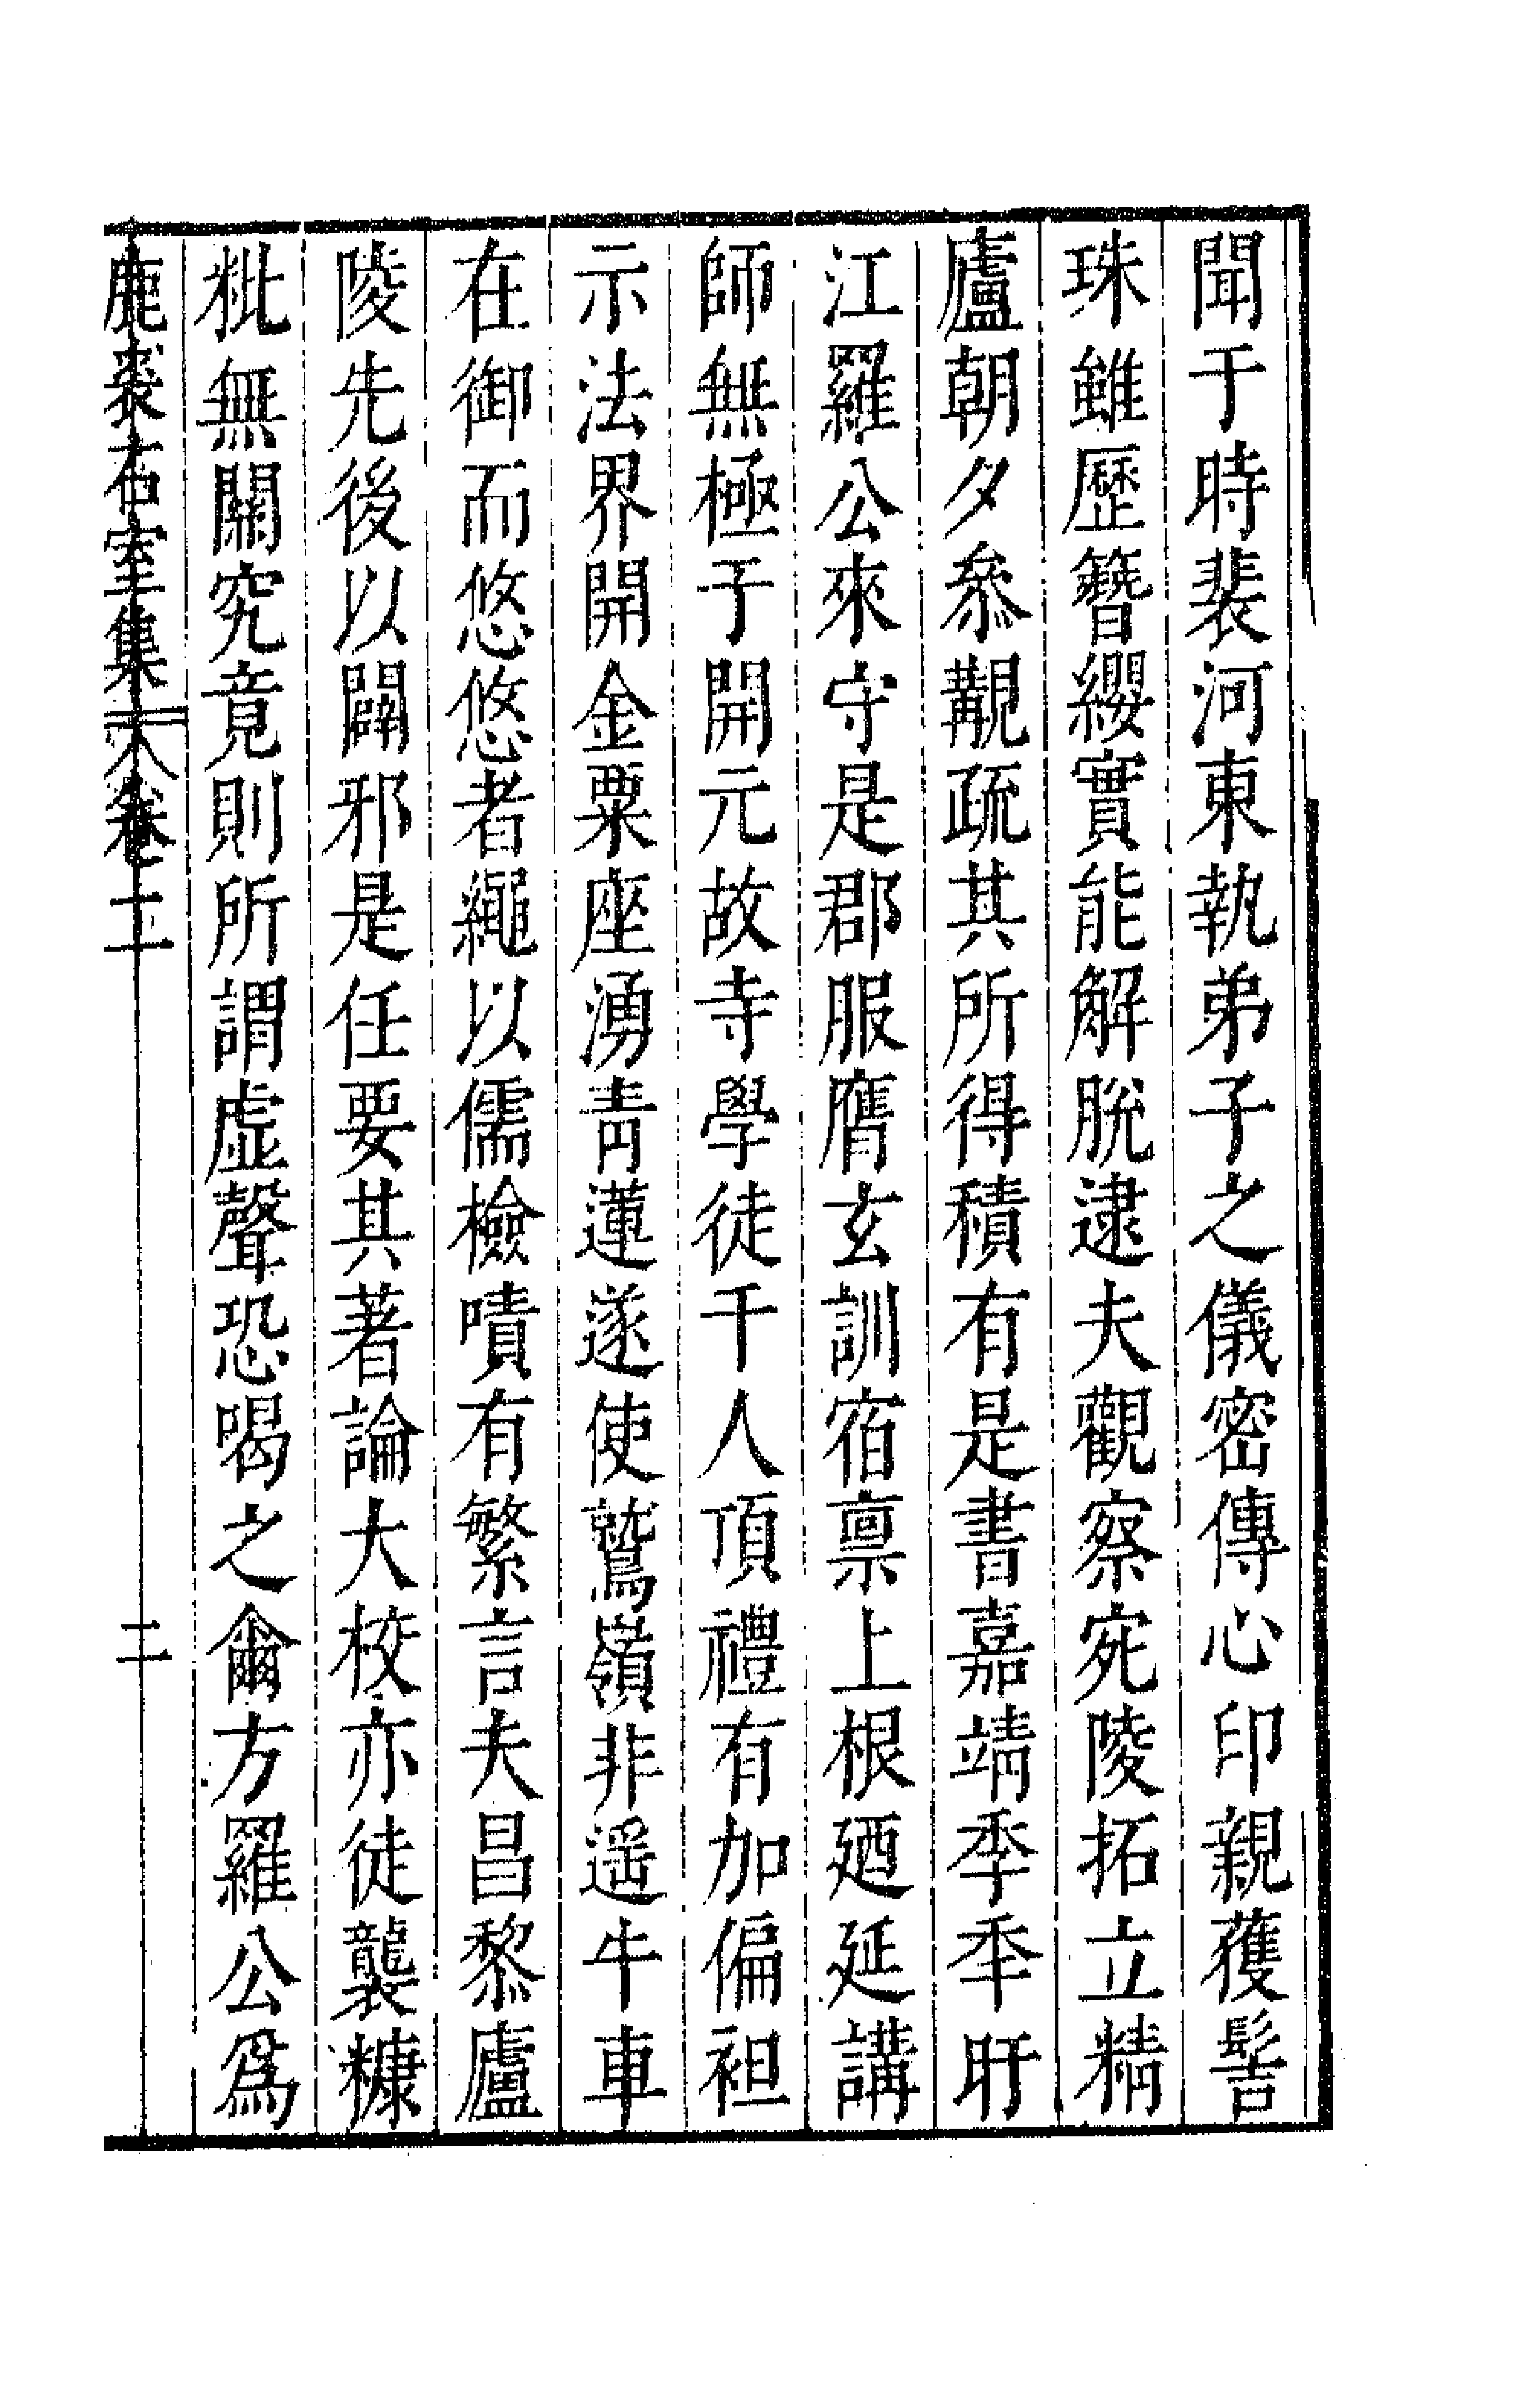 聞于時裴河東執弟子之儀密傳心印親獲髻
珠雖歷簪纓實能解脫逮夫觀察宛陵拓立精
廬朝夕叅覲疏其所得積有是書嘉靖季秊盱
江羅公來守是郡服膺玄訓宿禀上根廼延講
師無極于開元故寺學徒千人頂禮有加偏袒
示法界開金粟座湧青蓮遂使鷲嶺非遥牛車
在御而悠悠者繩以儒檢嘖有繁言夫昌黎廬
陵先後以闢邪是任要其著論大校亦徒襲糠
粃無關究竟則所謂虛聲恐喝之爾方羅公爲
鹿裘石室集 卷十二 二